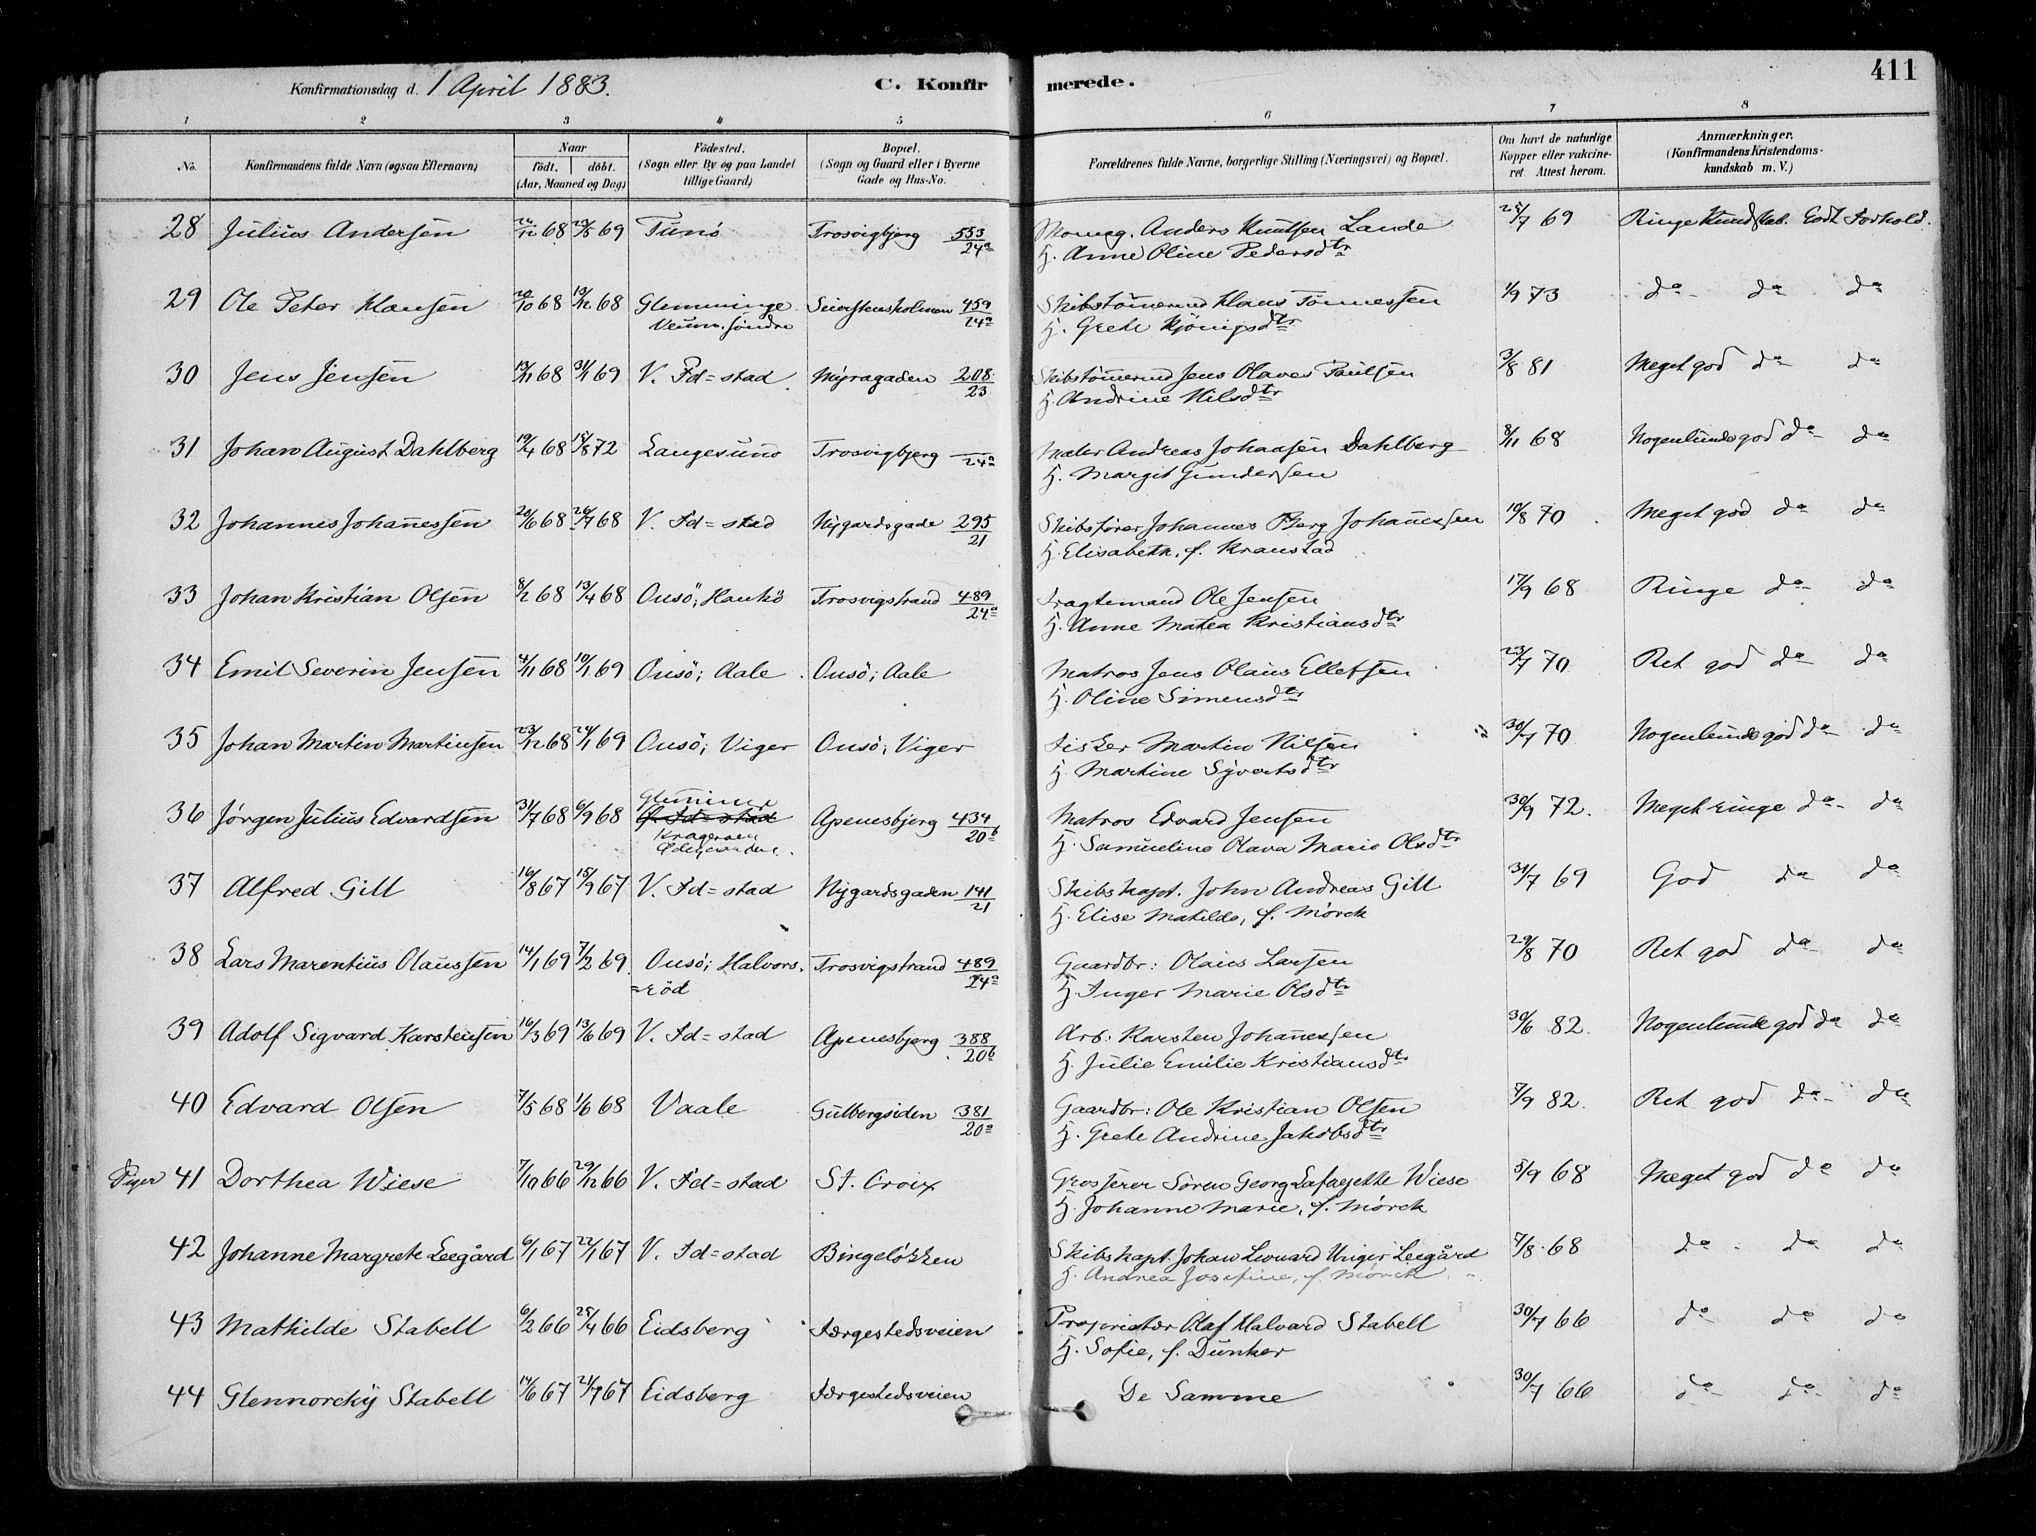 Konfirmationsdag d. 1 April 1883. C. Konfirmerede. 411
1 2 3 4 5 6 7 8
No. Konfirmandens fulde Navn (ogsaa Efternavn) Naar født. døbt. (Aar, Maaned og Dag) Fødested. (Sogn eller By og paa Landet tillige Gaard) Bopæl. (Sogn og Gaard eller i Byerne Gade og Hus-No. Forældrenes fulde Navne, borgerlige Stilling (Næringsvei) og Bopæl. Om havt de naturlige Kopper eller vakcineret. Attest herom. Anmærkninger. (Konfirmandens Kristendomskundskab m. V.)
28 Julius Andersen 68 69 Tunø Trosvigbjerg 553/24a Anders Knutsen Lande 25/7 69 Ringe Kundskab. Godt Forhold.
H. Anne Oline Pedersdtr
29 Ole Peter Hansen 20/10 68 13/12 68 Glemminge Seierstensholmen 459/24a Skibstømmermd Hans Tønnessen 1/9 73 do do do
Veum søndre H. Grete Kjønigsdtr
30 Jens Jensen 13/11 68 31/1 69 V. Fd=stad Myragaden 208/23 Skibstømmermd Jens Olaves Paulsen 3/8 81 Meget god do do
H. Andrine Nilsdtr
31 Johan August Dahlberg 19/4 68 18/8 72 Langesund Trosvigbjerg 24a Maler Andreas Johansen Dahlberg 8/11 68 Nogenlunde god do do
H. Margit Gundersen
32 Johannes Johannessen 20/6 68 26/7 68 V. Fd=stad Nygardsgade 295/21 Skibsfører Johannes Berg Johannessen 10/8 70 Meget god do do
H. Elisabeth, f. Kranstad
33 Johan Kristian Olsen 8/2 68 13/4 68 Onsö; Hankö Trosvigstrand 489/24a Fragtemand Ole Jensen 17/9 68 Ringe do do
H. Anne Matea Kristiansdtr
34 Emil Severin Jensen 4/11 68 10/1 69 Onsö; Aale Onsö; Aale Matros Jens Olaus Ellefsen 23/7 70 Ret god do do
H. Oline Simensdtr
35 Johan Martin Martinsen 23/12 68 24/1 69 Onsö; Viger Onsö; Viger Fisker Martin Nilsen 30/7 70 Nogenlunde god do do
H. Martine Syvertsdtr
36 Jørgen Julius Edvardsen 31/7 68 6/9 68 Glemminge Apenesbjerg 434/20b Matros Edvard Jensen 30/9 72. Meget ringe do do
Kragerøen H. Samueline Olava Marie Olsdtr
37 Alfred Gill 16/8 67 15/9 67 V. Fd=stad Nygardsgaden 141/21 Skibskapt. John Andreas Gill 31/7 69 God do do
H. Elise Matilde, f. Mørck
38 Lars Marentius Olaussen 14/1 69 7/2 69 Onsö; Halvors Trosvigstrand 489/24a Gaardbr: Olaus Larsen 29/8 70 Ret god do do
=röd H. Inger Marie Olsdtr
39 Adolf Sigvard Karstensen 16/3 69 13/6 69 V. Fd=stad Apenesbjerg 388/20b Arb: Karsten Johannessen 30/6 82. Nogenlunde god do do
H. Julie Emilie Kristiansdtr
40 Edvard Olsen 7/5 68 1/6 68 Vaale Gulbergsiden 381/20a Gaardbr: Ole Kristian Olsen 7/9 82. Ret god do do
H. Grete Andrine Jakobsdtr
Piger 41 Dorthea Wiese 7/10 66 29/12 66 V. Fd=stad St. Croix Grosserer Søren Georg Lafayette Wiese 5/9 68 Meget god do do
H. Johanne Marie, f. Mørck
42 Johanne Margrete Leegård 6/1 67 22/1 67 V. Fd=stad Bingeløkken Skibskapt. Johan Leonard Unger Leegård 7/8 68 do do do
H. Andrea Josefine, f. Mørck
43 Mathilde Stabell 6/2 66 25/4 66 Eidsberg Færgestedsveien Proprietær Olaf Halvard Stabell 30/7 66 do do do
H. Sofie, f. Dunker
44 Glennorchy Stabell 14/6 67 21/7 67 Eidsberg Færgestedsveien De Samme 30/7 66 do do do